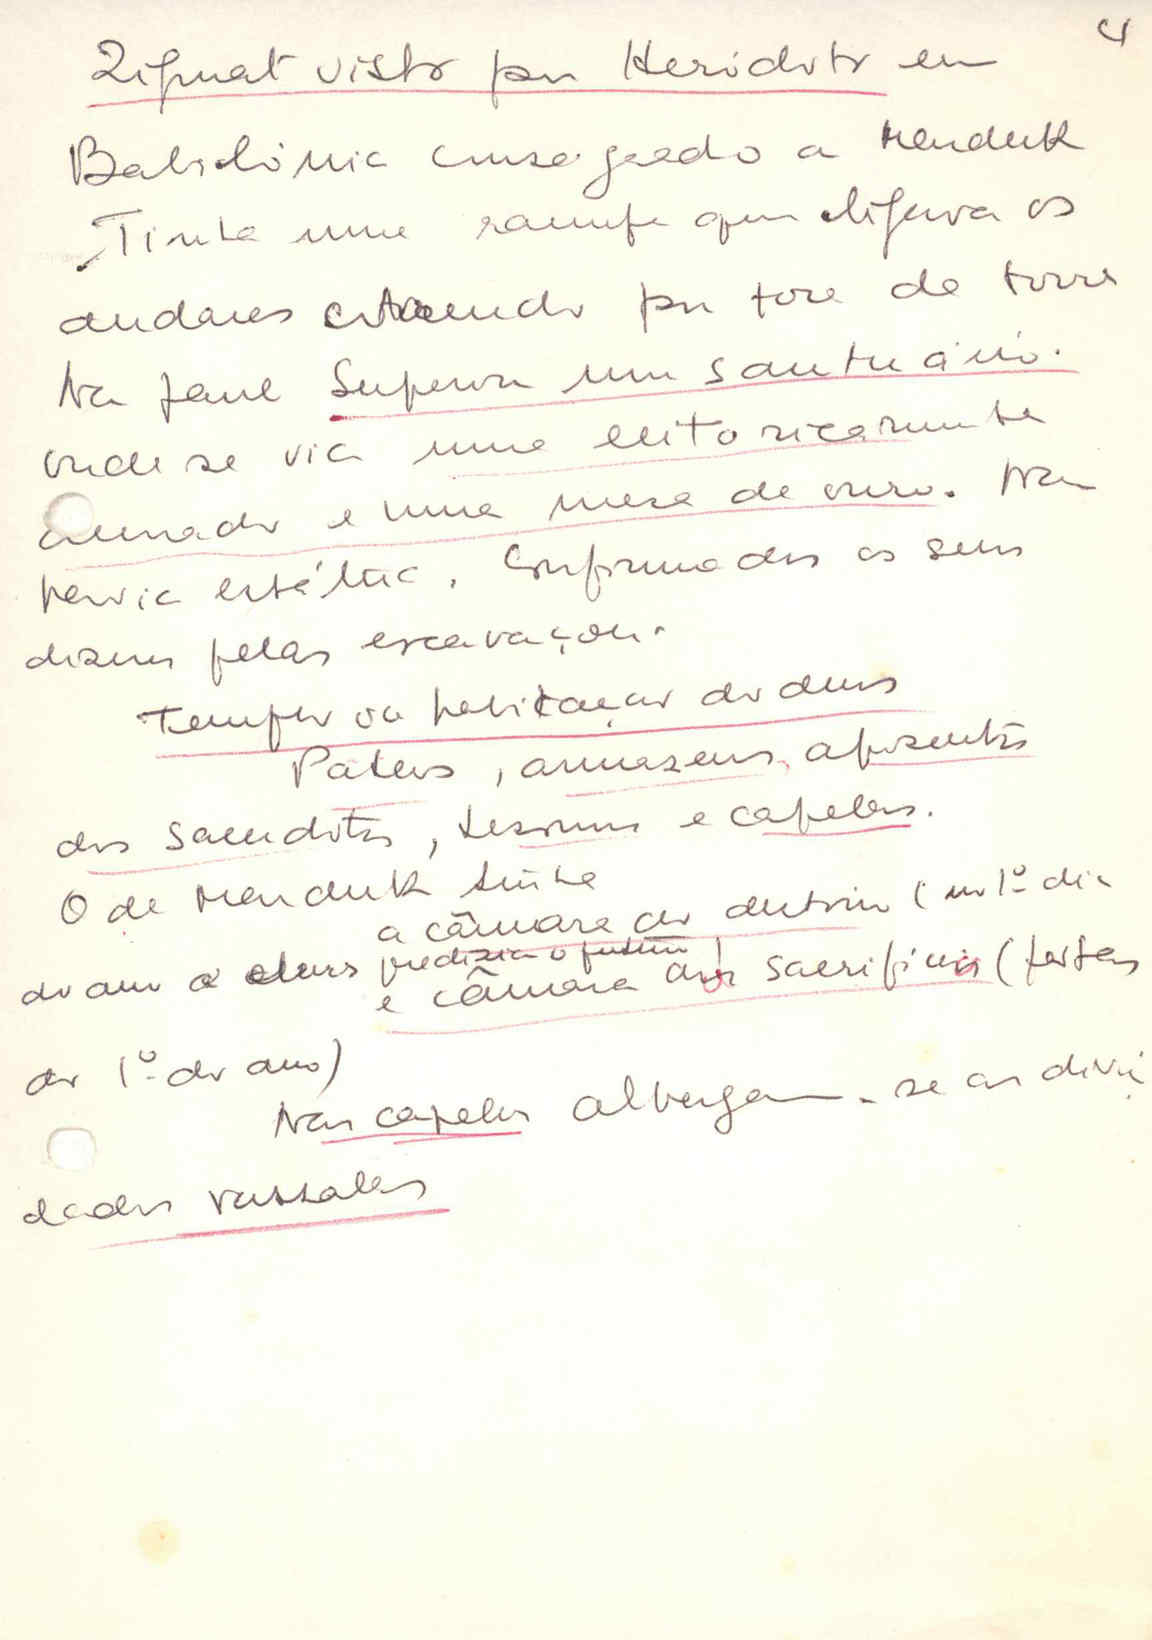 4
Zigurat visto por Heródoto em
Babilónia consagrado a Marduk
Tinha uma rampa que ligava os
andares por fora da torre
Na parte Superior um santuário.
onde se via uma leito ricamente
armado e uma mesa de ouro. Não
havia estátua. Confirmados os seus
dizeres pelas escavações.
Templo ou habitação do deus
Páteos, armazens, aposentos
dos Sacerdotes, tesouros e capelas.
O de Marduk tinha
a câmara do destino (no 1º dia
do ano o deus predizia o futuro)
e câmara dos sacrifícios (festas
do 1º do ano)
Nas capelas albergam-se as divin
dades vassalas